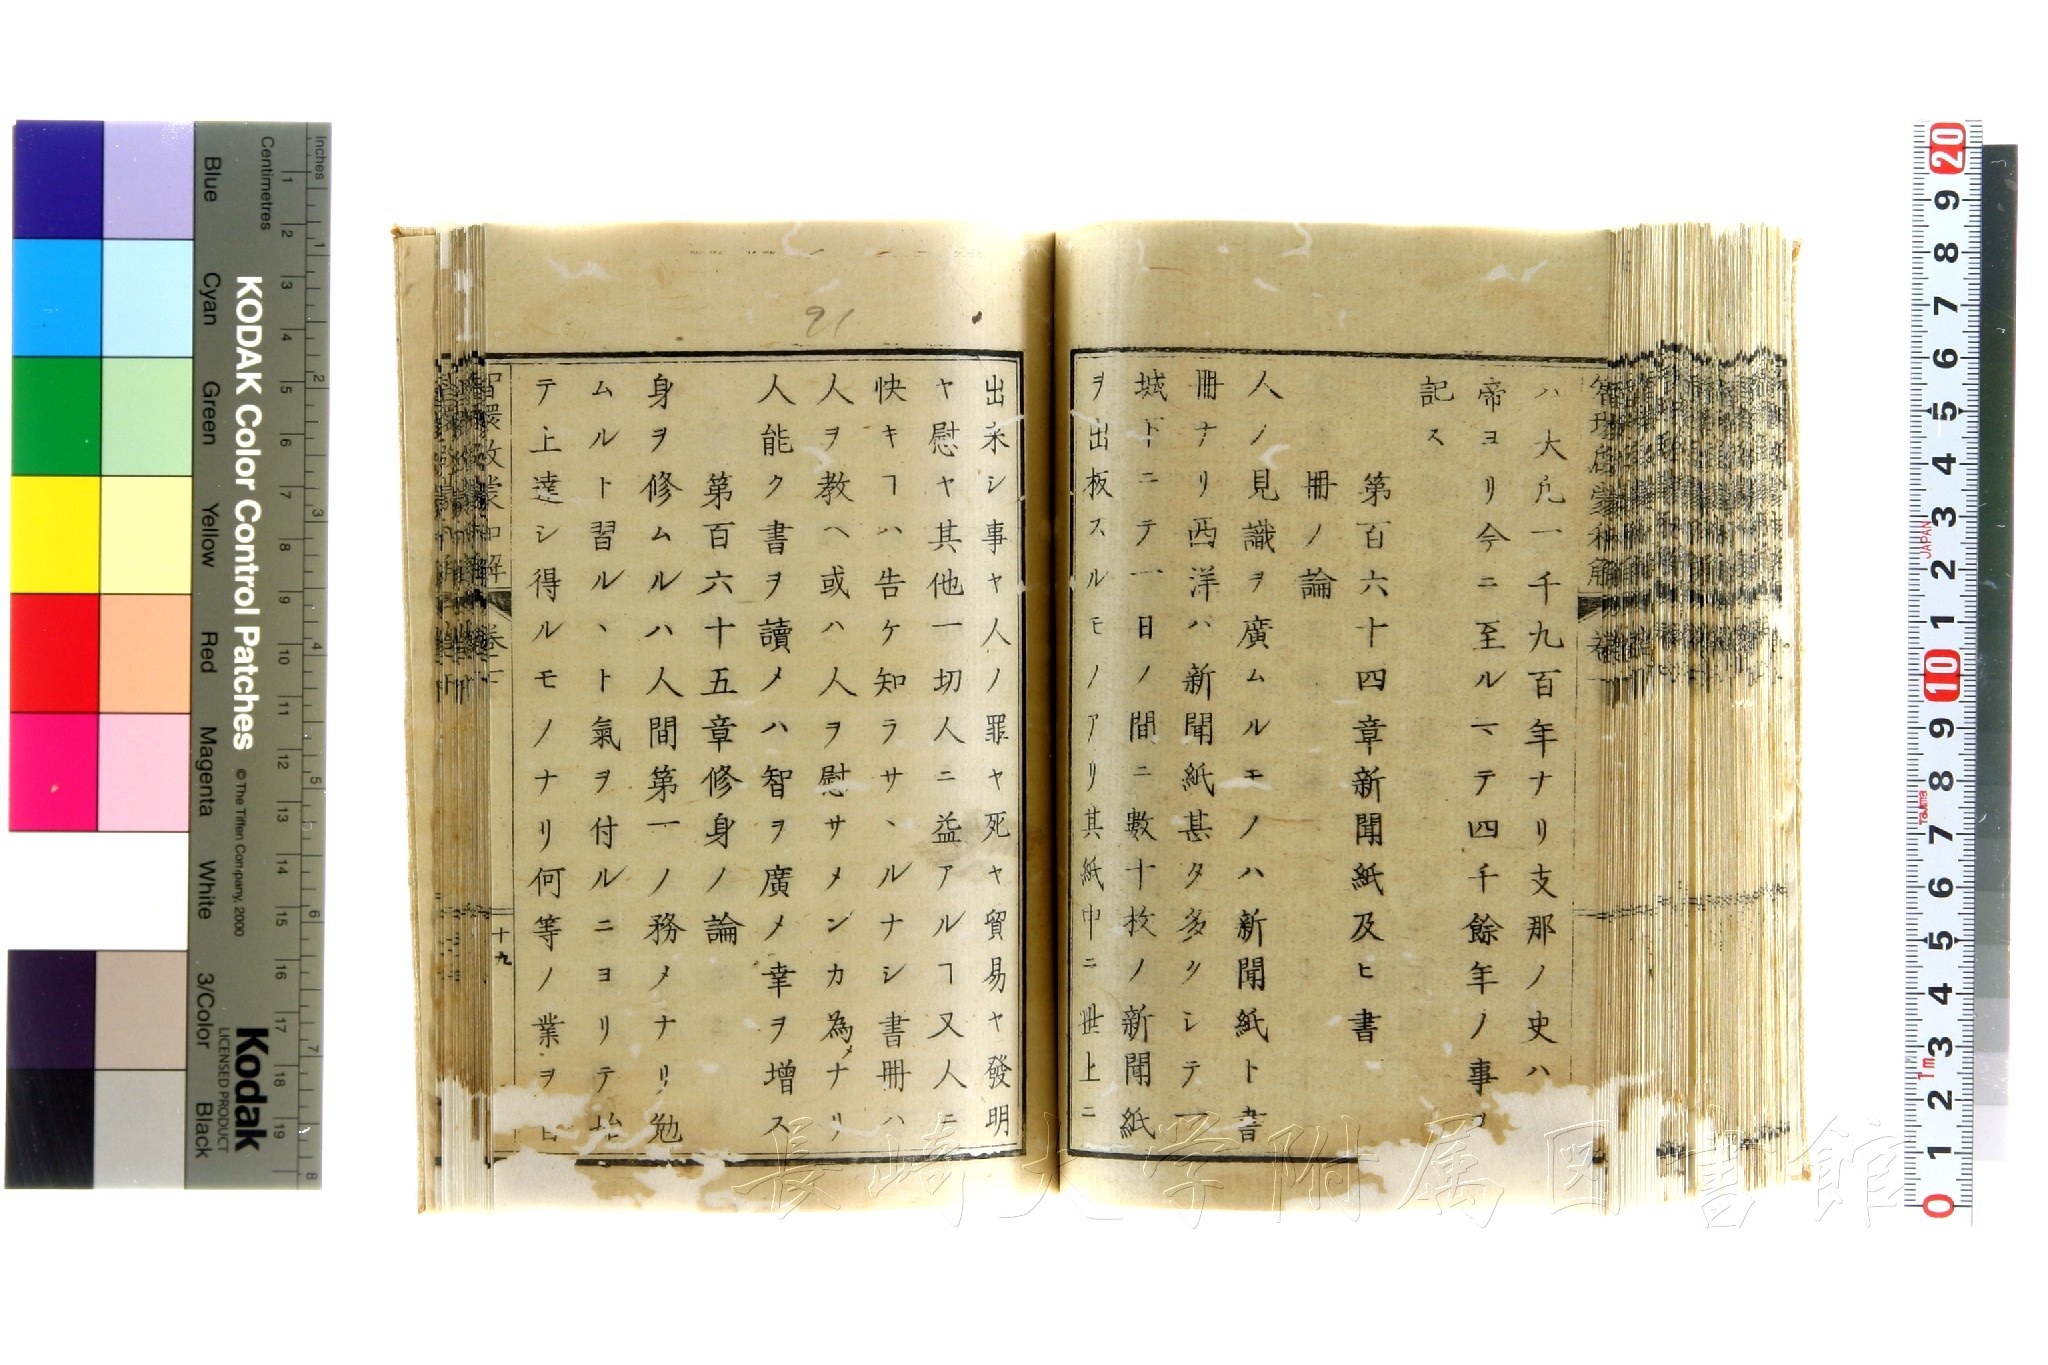 ハ大凡一千九百年ナリ支那ノ史ハ
帝ヨリ今ニ至ルマテ四千餘年ノ事ヲ
記ス
第百六十四章新聞紙及ヒ書
冊ノ論
人ノ見識ヲ廣ムルモノハ新聞紙ト書
冊ナリ西洋ハ新聞紙甚タ多クシテ一
城下ニテ一日ノ間ニ數十枚ノ新聞紙
ヲ出板スルモノアリ其紙中ニ世上ニ
出来シ事ヤ人ノ罪ヤ死ヤ貿易ヤ發明
ヤ慰ヤ其他一切人ニ益アルヿ又人ニ
快キヿハ告ケ知ラサヽルナシ書冊ハ
人ヲ教ヘ或ハ人ヲ慰サメンカ為メナリ
人能ク書ヲ讀メハ智ヲ廣メ幸ヲ増ス
第百六十五章修身ノ論
身ヲ修ムルハ人間第一ノ務メナリ勉
ムルト習ルヽト氣ヲ付ルニヨリテ始
テ上達シ得ルモノナリ何等ノ業ヲ
智環啟蒙和解
十九
91
智環啟蒙和解
KODAK Color Control Patches
© The Tiffen Company, 2000
Kodak
LICENSED PRODUCT
Inches
Centimetres
Blue
Cyan
Green
Yellow
Red
Magenta
White
3/Color
Black
1 2 3 4 5 6 7 8
1 2 3 4 5 6 7 8 9 10 11 12 13 14 15 16 17 18 19
20 9 8 7 6 5 4 3 2 1 10 9 8 7 6 5 4 3 2 1 0
JAPAN
Tajima
Tm
長崎大学附属図書館